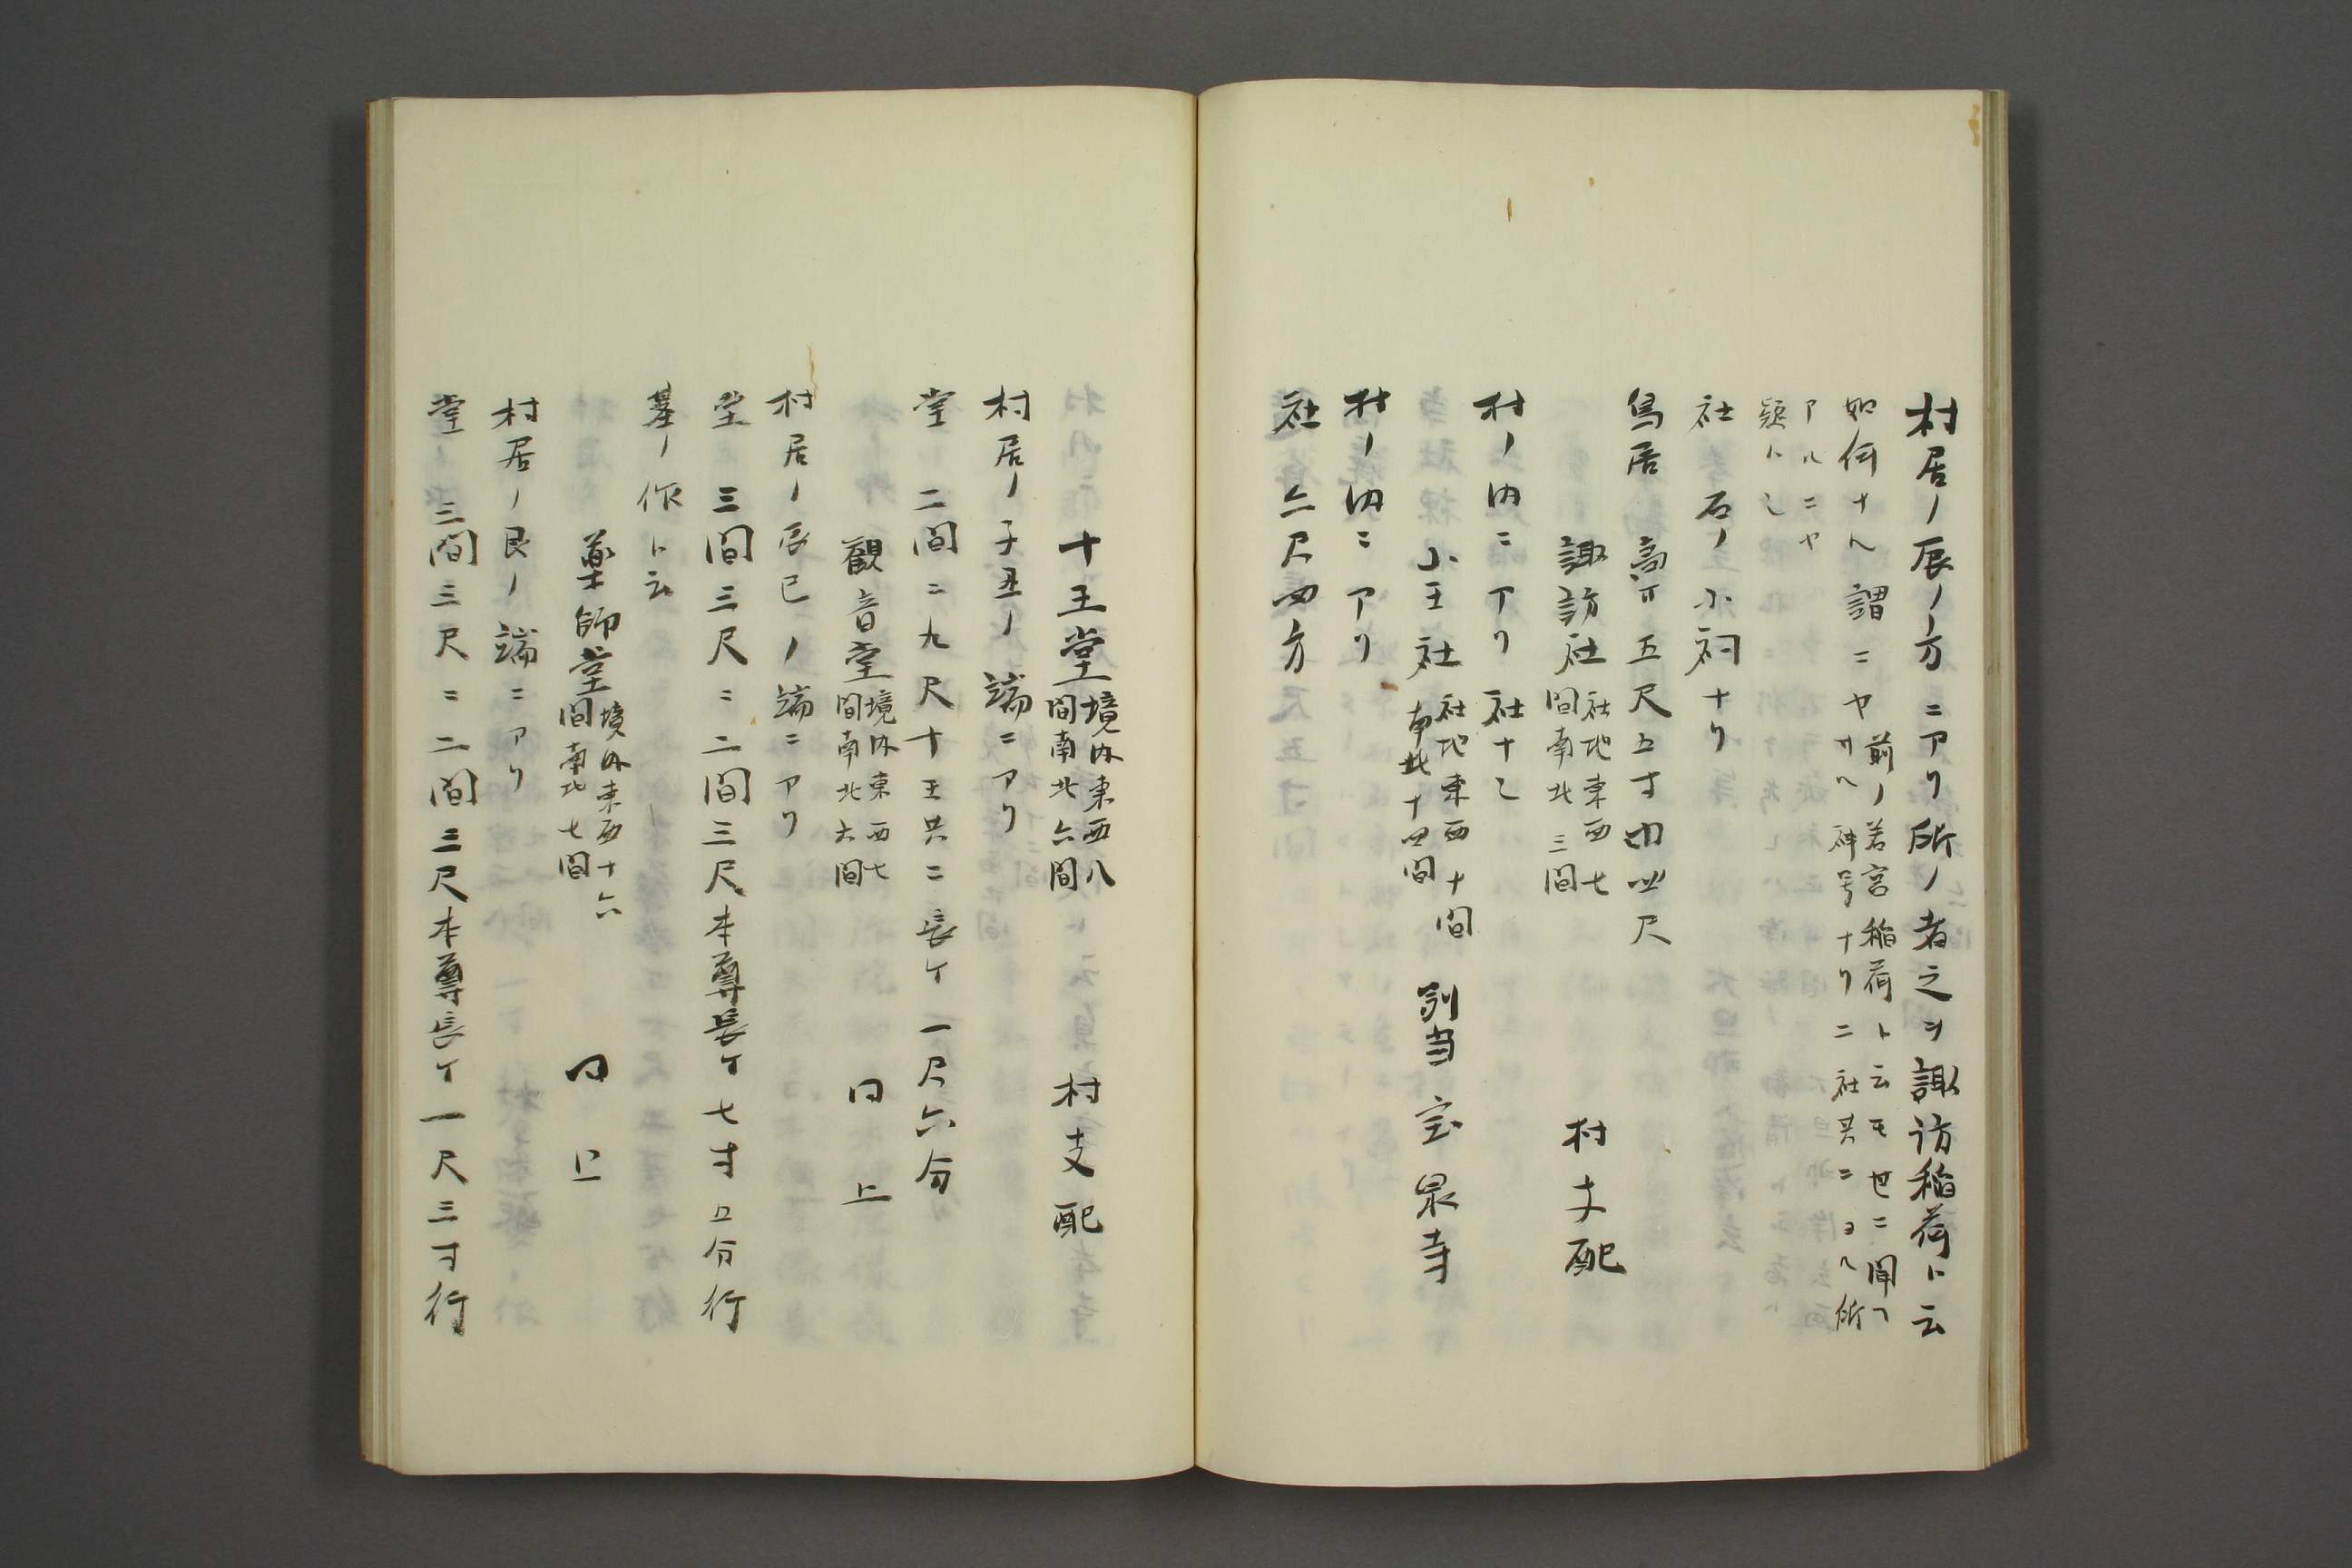 村居ノ辰ノ方ニアリ所ノ者之ヲ諏訪稲荷ト云
如何ナル謂ニヤ
前ノ若宮稲荷ト云モ世ニ聞フ
カヽル神号ナリ二社共ニヨル所
アルニヤ
疑ハシ
社 石ノ小祠ナリ
鳥居 高サ五尺五寸巾四尺
諏訪社 社地東西七
間南北三間 村支配
村ノ内ニアリ社ナシ
小王社 社地東西十間
南北十四間 別当 宝泉寺
村ノ内ニアリ
社 六尺四方
十王堂 境内東西八
間南北六間 村支配
村居ノ子丑ノ端ニアリ
堂 二間ニ九尺十王共ニ長ケ一尺六分
観音堂 境内東西七
間南北六間 同上
村居ノ辰巳ノ端ニアリ
堂 三間三尺ニ二間三尺本尊長ケ七寸五分行
基ノ作ト云
薬師堂 境内東西十六
間南北七間 同上
村居ノ艮ノ端ニアリ
堂 三間三尺ニ二間三尺本尊長ケ一尺三寸行